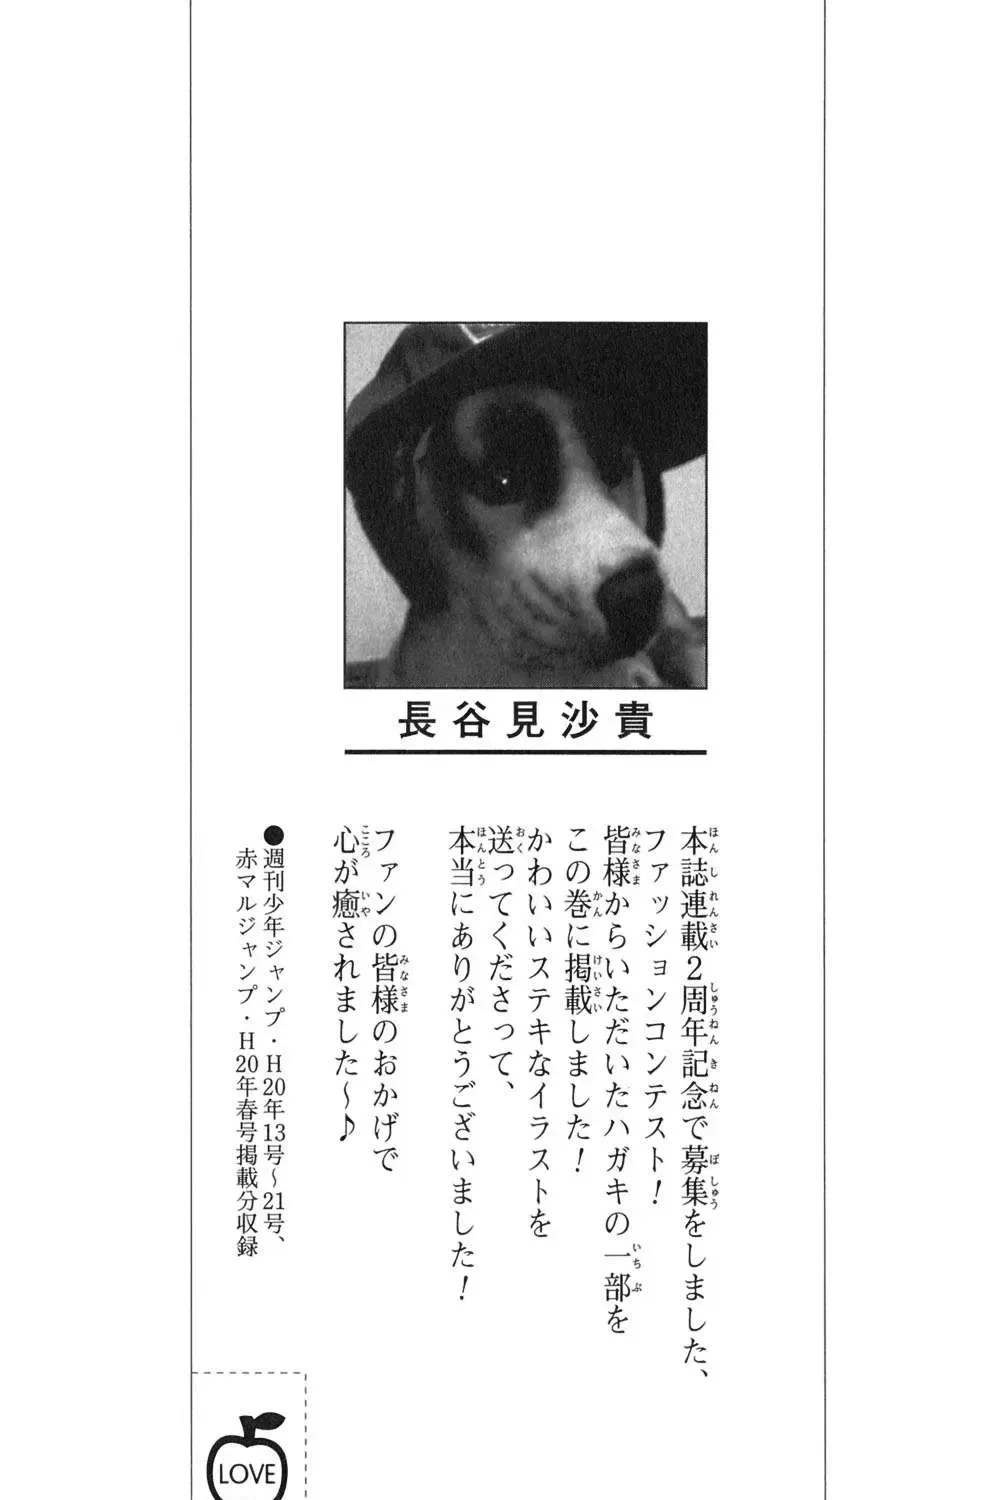 長谷見沙貴
本誌連載2周年記念で募集をしました、
ファッションコンテスト！
皆様からいただいたハガキの一部を
この巻に掲載しました！
かわいいステキなイラストを
送ってくださって、
本当にありがとうございました！
ファンの皆様のおかげで
心が癒されました〜♪
●週刊少年ジャンプ・H20年13号〜21号、
赤マルジャンプ・H20年春号掲載分収録
LOVE